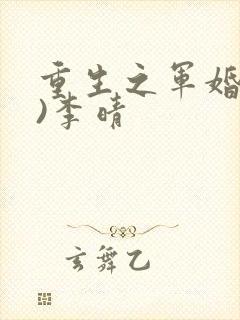 重生之军婚
)李晴
玄舞乙